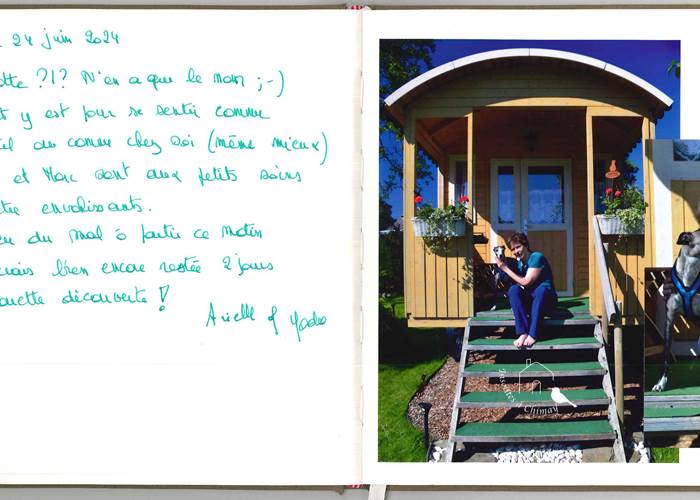 24 juin 2024
?!? N'en a que le nom ;-)
y est pour se sentir comme
ou comme chez soi (même mieux)
et Marc sont aux petits soins
être envahissants.
du mal à partir ce matin
bien encore restée 2 jours
découverte !
Arielle & Yado
2 assiettes à Chimay